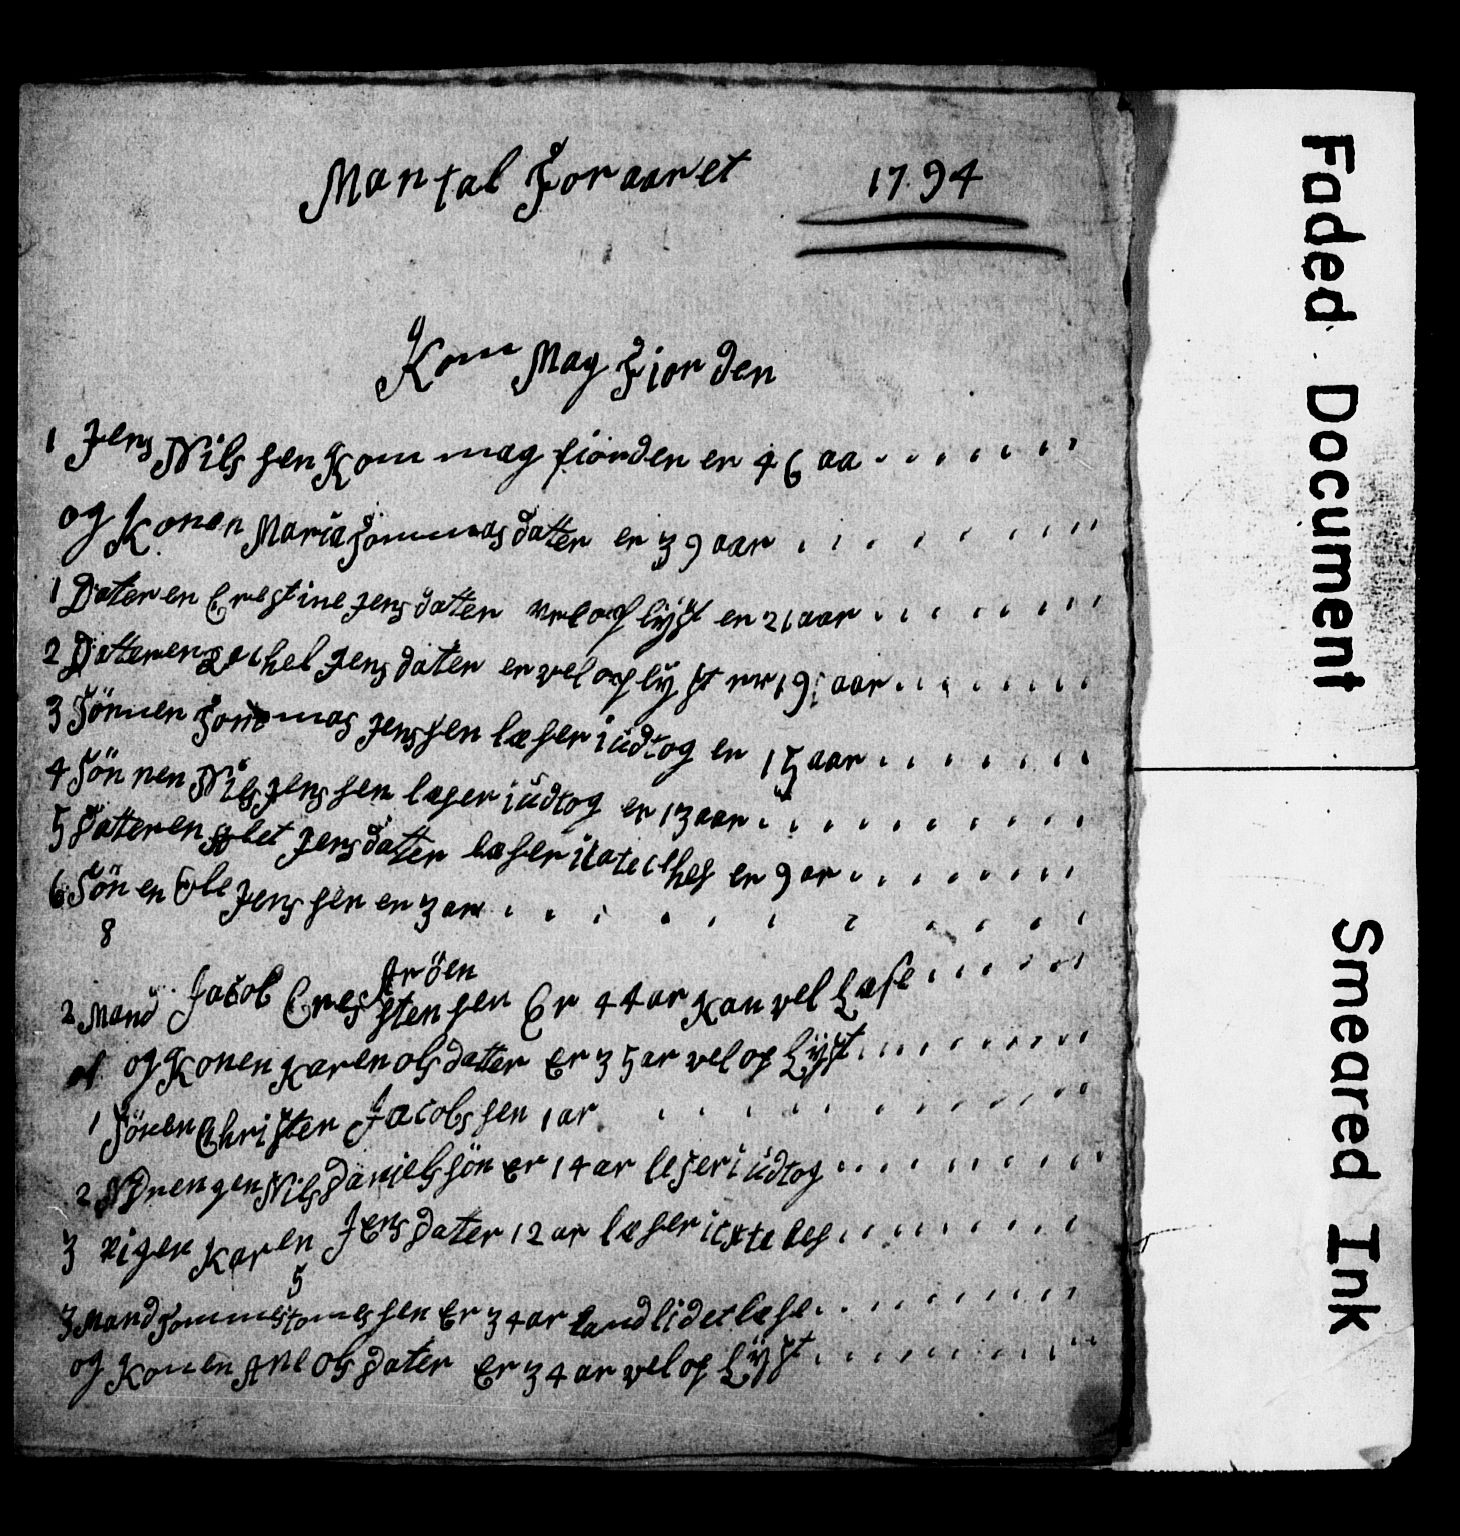 Mantal For aaret 1794
Kom Mag Fiorden
1 Jens Nils sen Kom mag fiorden er 46 aa
og Konen Maria Tommas datter er 39 aar
1 Dateren Crestine Jens dater vel op lÿst er 21 aar
2 Datteren Rachel Jens dater er vel op lÿst 19 aar
3 Sönnen Tommas Jens sen læser i üdtog er 15 aar
4 Sön nen Nils Jens sen læser i üdtog er 13 aar
5 Datteren Jens datter læser i er 9 ar
6 Sön en Ole Jens sen er 3 ar
8
Ströen
2 Mand Jacob Cres sten sen Er 44 ar Kan vel Læse
og Konen Karen ols datter Er 35 ar vel op Lÿst
1 Sönen Christen Jacobs sen 1 ar
2 Drengen Nils Daniels sön er 14 ar leser i üdtog
3 Pigen Karen Jens dater 12 ar læser i
5
3 Mand Tommes Tomes sen Er 34 ar land lidet læse
og Konen Ane Ols dater Er 34 ar vel op Lÿst
Faded Document
Smeared Ink